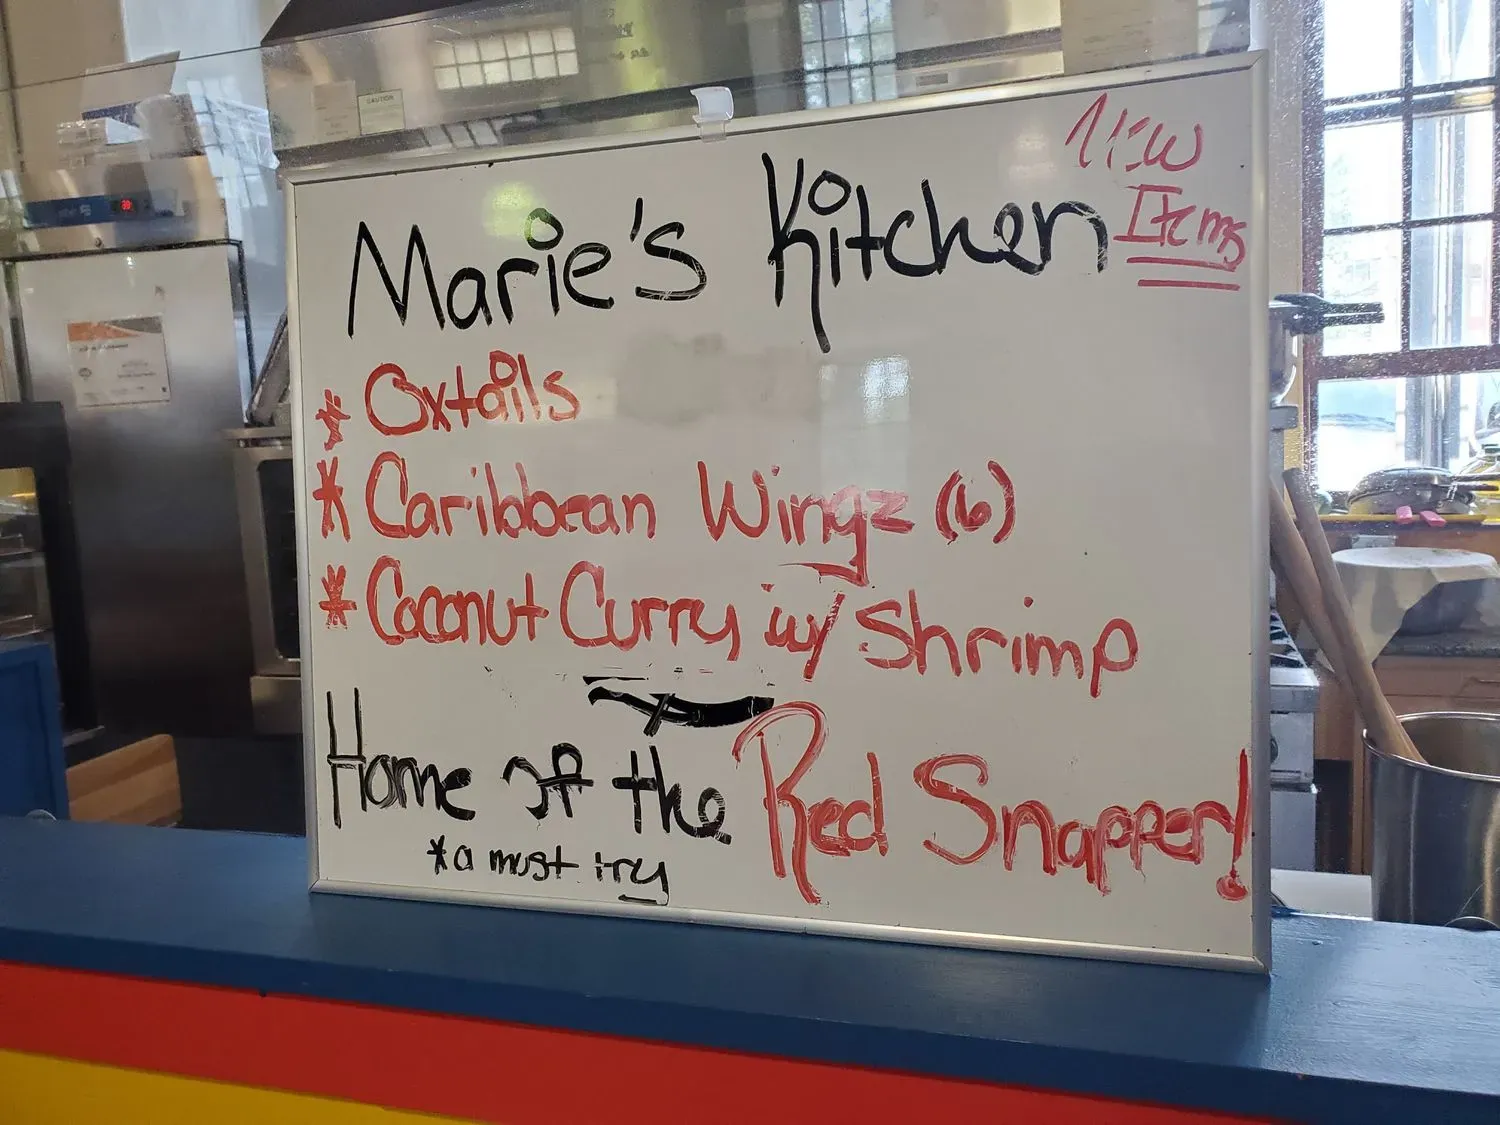 New
Items
Marie's Kitchen
* Oxtails
* Caribbean Wingz (6)
* Coconut Curry w/ Shrimp
Home of the Red Snapper!
*a must try
CAUTION